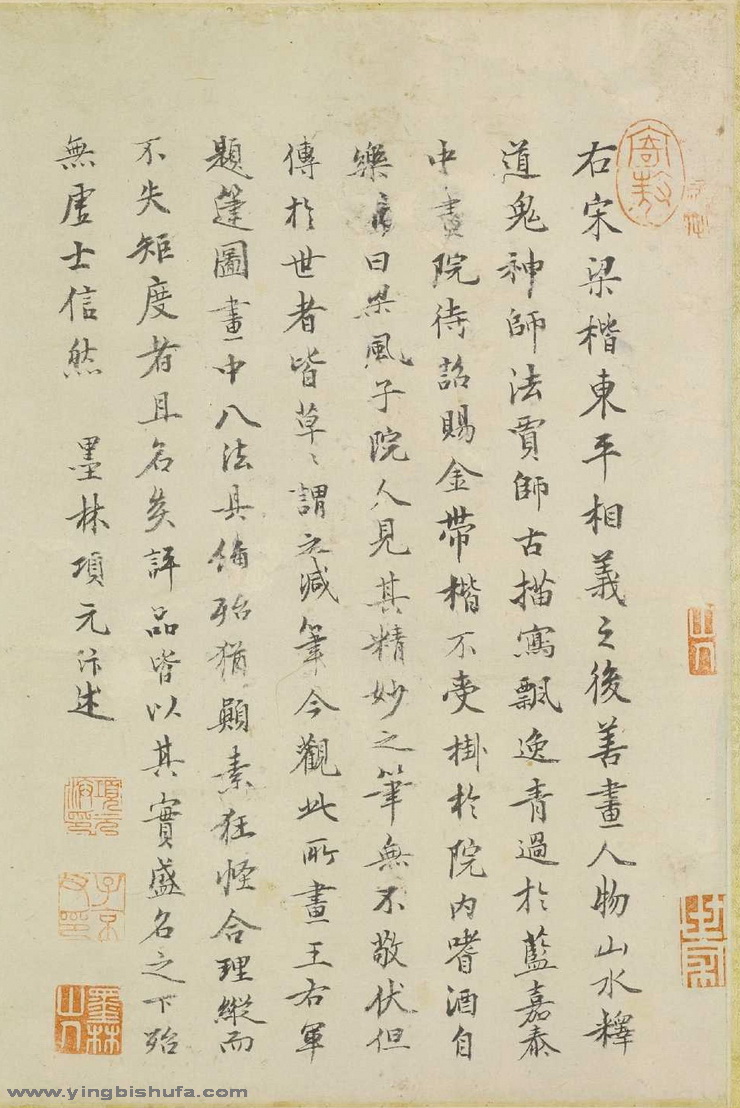 右宋梁楷東平相義之後善畫人物山水釋
道鬼神師法賈師古描寫飄逸青過於藍嘉泰
中畫院待詔賜金帶楷不受掛於院內嗜酒自
樂號曰梁風子院人見其精妙之筆無不敬伏但
傳於世者皆草〻謂之減筆今觀此所畫王右軍
題箑圖畫中八法具備殆猶顛素狂怪合理縱而
不失矩度者且名賢評品皆以其實盛名之下殆
無虛士信然 墨林項元汴述
項元汴印
子京父印
墨林山人
www.yingbishufa.com